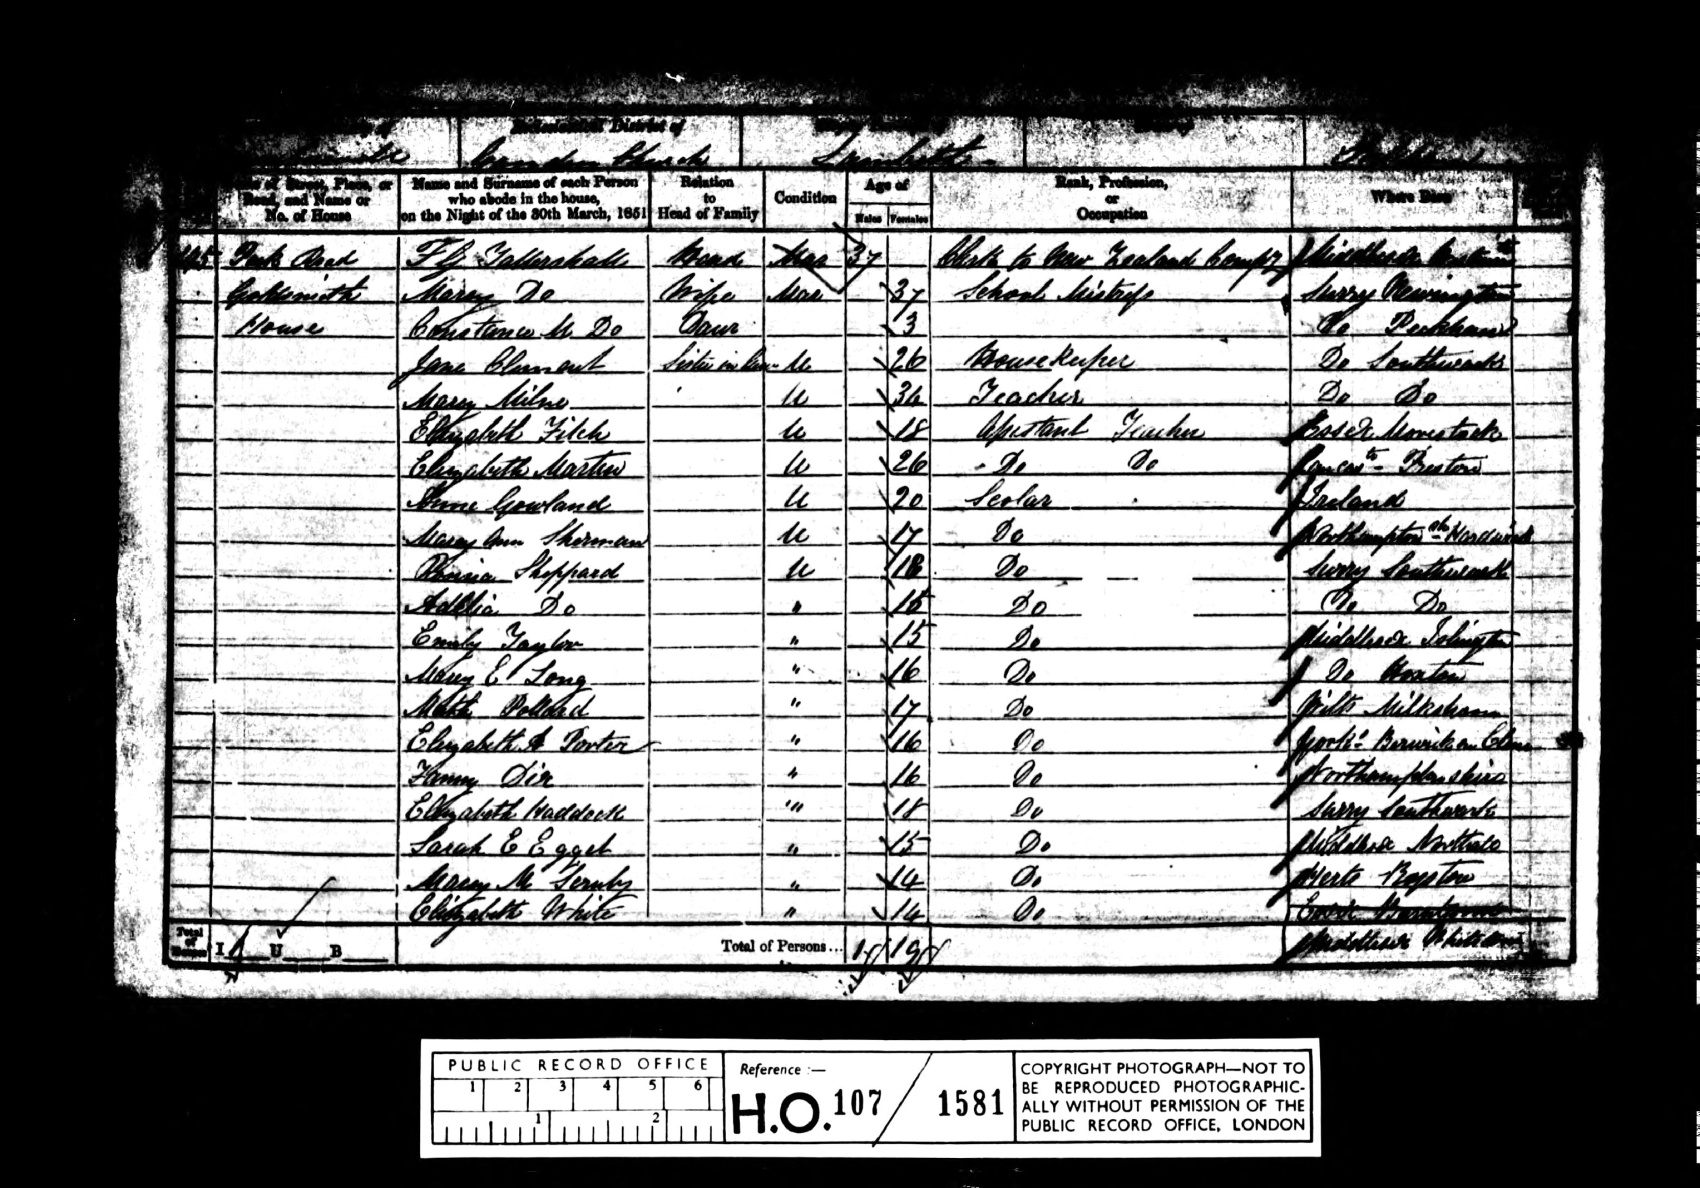 Ecclesiastical District of
Camden Church Lambeth
Name of Street, Place, or Road, and Name or No. of House
Name and Surname of each Person who abode in the house, on the Night of the 30th March, 1851
Relation to Head of Family
Condition
Age of
Males Females
Rank, Profession, or Occupation
Where Born
Park Road F G Tattershall Head Mar 37 Clerk to New Zealand Compy Middlesex
Goldsmith Marey Do Wife Mar 37 School Mistress Surry Newington
House Constance M Do Daur 3 Do Peckham
Jane Clement Sister in Law U 26 House Keeper Do Southwark
Marey Milne U 34 Teacher Do Do
Elizabeth Fitch U 18 Assistant Teacher Essex
Elizabeth Martin U 26 Do Do Lancas - Preston
Anne Gowland U 20 Scolar Ireland
Marey Ann Sherman U 17 Do Northampton sh Hardwick
Sheppard U 18 Do Surry Southwark
Adelia Do " 15 Do Do Do
Emily Taylor " 15 Do Middlesex Islington
Marey E Long " 16 Do Do Hoxton
Pollard " 17 Do Wilts Milksham
Elizabeth A Porter " 16 Do
Fanny Dix " 16 Do Northamptonshire
Elizabeth Haddock " 18 Do Surry Southwark
Sarah E Egget " 15 Do Middlesex
Marey M " 14 Do Herts Royston
Elizabeth White " 14 Do
Middlesex
Total of Houses I 1 U B Total of Persons... 1 19
PUBLIC RECORD OFFICE
1 2 3 4 5 6
1 2
Reference :—
H.O. 107 / 1581
COPYRIGHT PHOTOGRAPH—NOT TO
BE REPRODUCED PHOTOGRAPHIC-
ALLY WITHOUT PERMISSION OF THE
PUBLIC RECORD OFFICE, LONDON